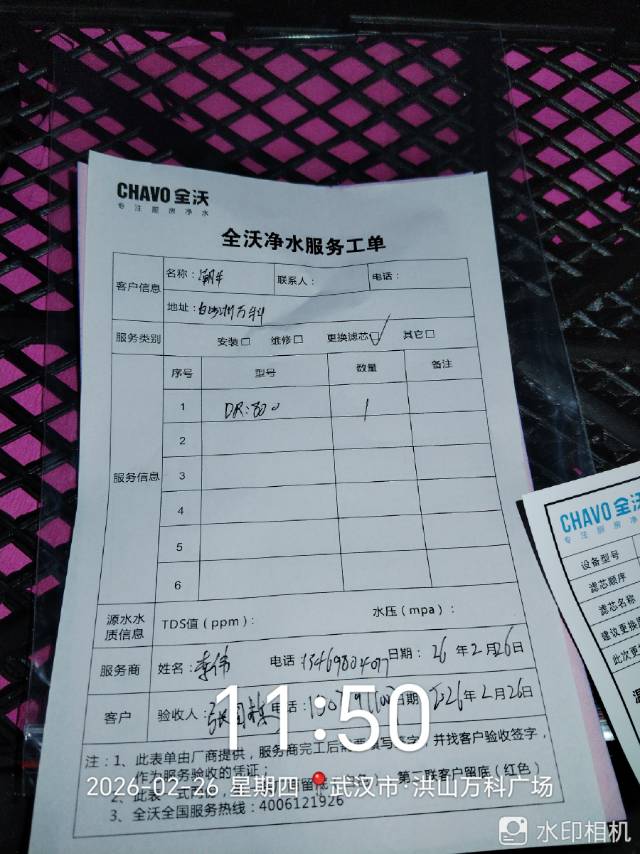 CHAVO 全沃
专注厨房净水
全沃净水服务工单
客户信息 名称：潮牛 联系人： 电话：
地址：白沙洲万科
服务类别 安装□ 维修□ 更换滤芯□✓ 其它□
序号 型号 数量 备注
1 DR:800 1
2
服务信息 3
4
5
6
源水水质信息 TDS值（ppm）： 水压（mpa）：
服务商 姓名：李伟 电话 日期：26年2月26日
客户 验收人： 电话： 日期：2026年2月26日
注：1、此表单由厂商提供，服务商完工后需要填写 字，并找客户验收签字，
作为服务验收的凭证；
2、此表一式 留 第 联客户留底（红色）
3、全沃全国服务热线：4006121926
11:50
2026-02-26 星期四 武汉市·洪山万科广场
水印相机
CHAVO 全沃
专注厨房净
设备型号
滤芯顺序
滤芯名称
建议更换
此次更